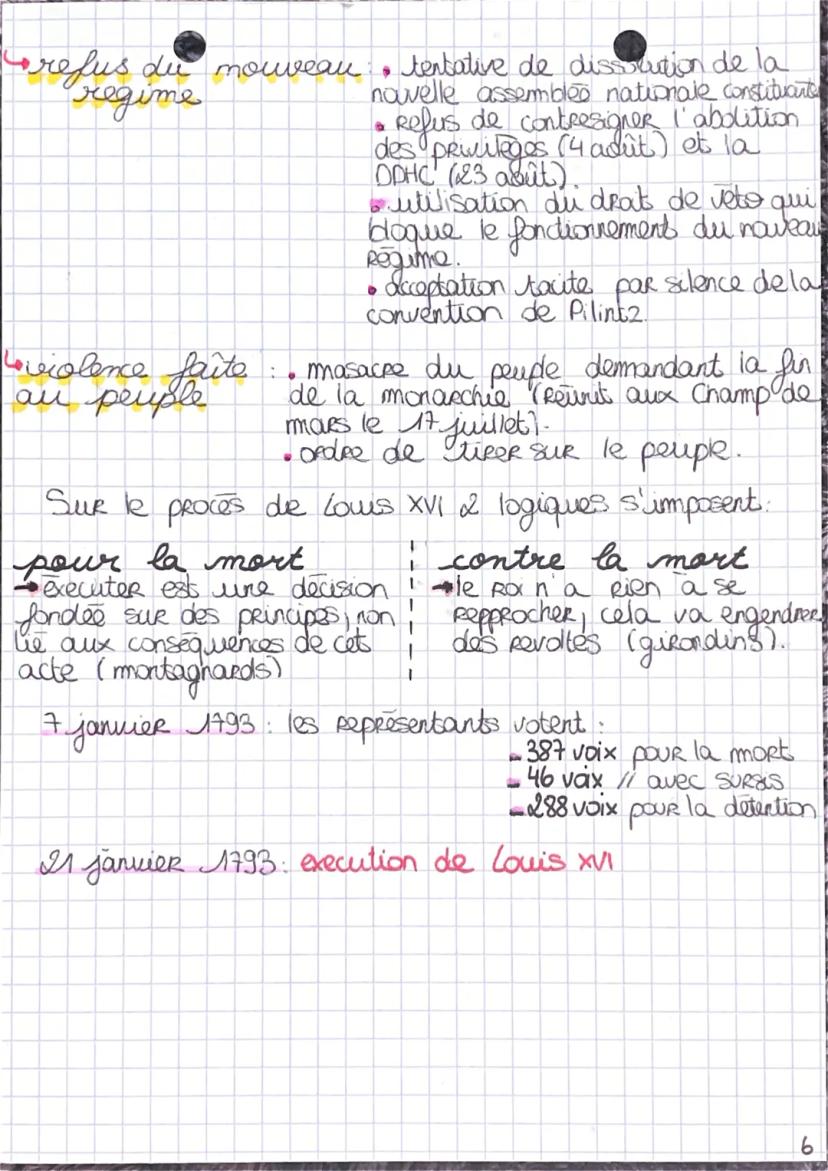 ↳ refus du nouveau : • tentative de dissolution de la
régime nouvelle assemblée nationale constituante
• Refus de contresigner l'abolition
des privilèges (4 août) et la
DDHC (23 août).
• utilisation du droit de veto qui
bloque le fonctionnement du nouveau
régime.
• acceptation tacite par silence de la
convention de Pilintz.
↳ violence faîte : • masacre du peuple demandant la fin
au peuple de la monarchie (Réunit aux Champ de
mars le 17 juillet).
• ordre de tirer sur le peuple.
Sur le procès de Louis XVI 2 logiques s'imposent :
pour la mort
→ éxecuter est une décision
fondée sur des principes, non
lié aux conséquences de cet
acte (montagnards)
contre la mort
→ le Roi n'a rien à se
repprocher, cela va engendrer
des revoltes (girondins).
7 janvier 1793 : les représentants votent :
- 387 voix pour la mort
- 46 voix // avec sursis
- 288 voix pour la détention
21 janvier 1793 : execution de Louis XVI
6